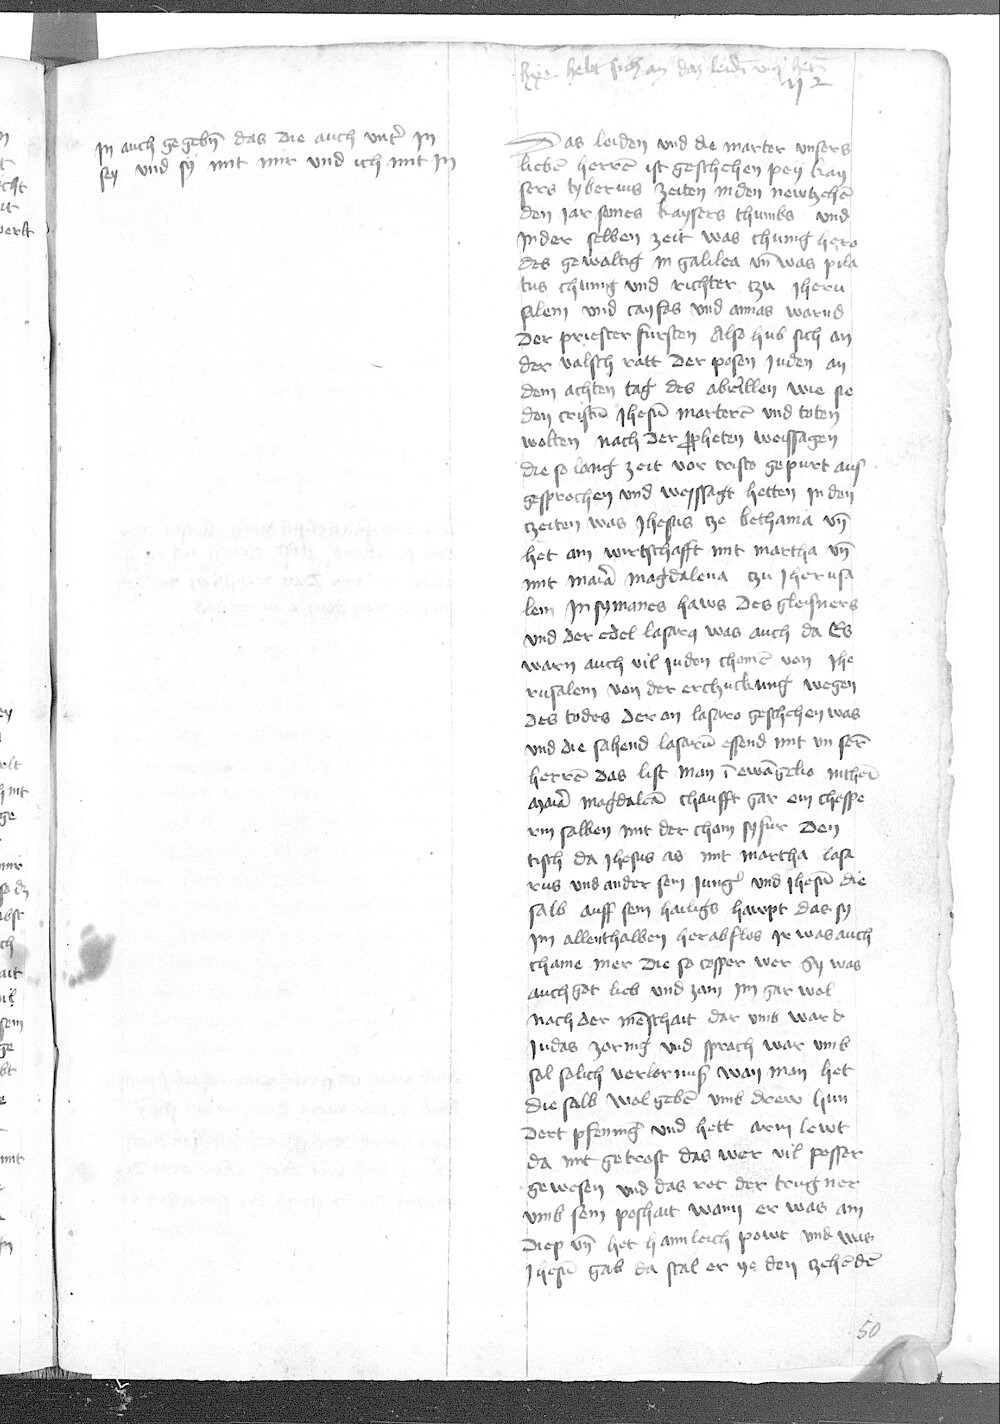 In auch gegebn̄ das die auch unt᷑ In
sey und sy mit mir und ich mit In
Hye hebt sich an das leidn̄ vnß hern̄
Das leiden und die marter unsers
liebē herrē ist geschehen pey kay
sers tyberius zeiten in den newtzehē
den Iar seines kaysers thumbs und
In der selben zeit was chunig hero
des gewaltig in galilea vn̄ was pila
tus chunig und richter tzu Iheru
salem und cayfas und annas warnd
Der priester fursten Also hub sich an
der valsch ratt Der posen Juden an
dem achten tag des abrillen wie sie
den cristū Jhesū marterē und toten
wolten nach der propheten weissagen
die so lang zeit vor cristo gepurt aus
gesprochen und weyssagt hetten In den
tzeiten was Jhesus tze bethania vn̄
het ain wirtschafft mit martha vn̄
mit maria magdalena tzu Iherusa
lem In symanes haws Des gleisners
und der edel lasarus was auch da Es
warn auch vil Juden chomē von Ihe
rusalem von der erchuckung wegen
Des todes Der an lasaro geschehen was
und die sahend lasarū essend mit un ser̄
herrē Das list man ī ewāgelio
maria magdalēa chaufft gar ein chospe
rin salben mit der cham sy fur Den
tisch da Jhesus as mit martha lasa
rus und ander sein Jung᷑ und Jhesū die
salb auff sein hailigs hawpt das sy
Im allenthalben herabflos Ir was auch
chaine mer Die so cosper wer Sy was
auch got lieb und zam Im gar wol
nach der mēschait dar umb ward
Judas zornig und sprach war umb
sol solich verlornus wan man het
die salb wol gebē umb drew hun
Dert pfening und hett arm lewt
da mit getrost das wer vil posser
gewesen und das ret der trugner
umb sein poshait wann er was ain
Diep vn̄ het hannleich powt und was
Jhesū gab da stal er ye den zehēdē
50